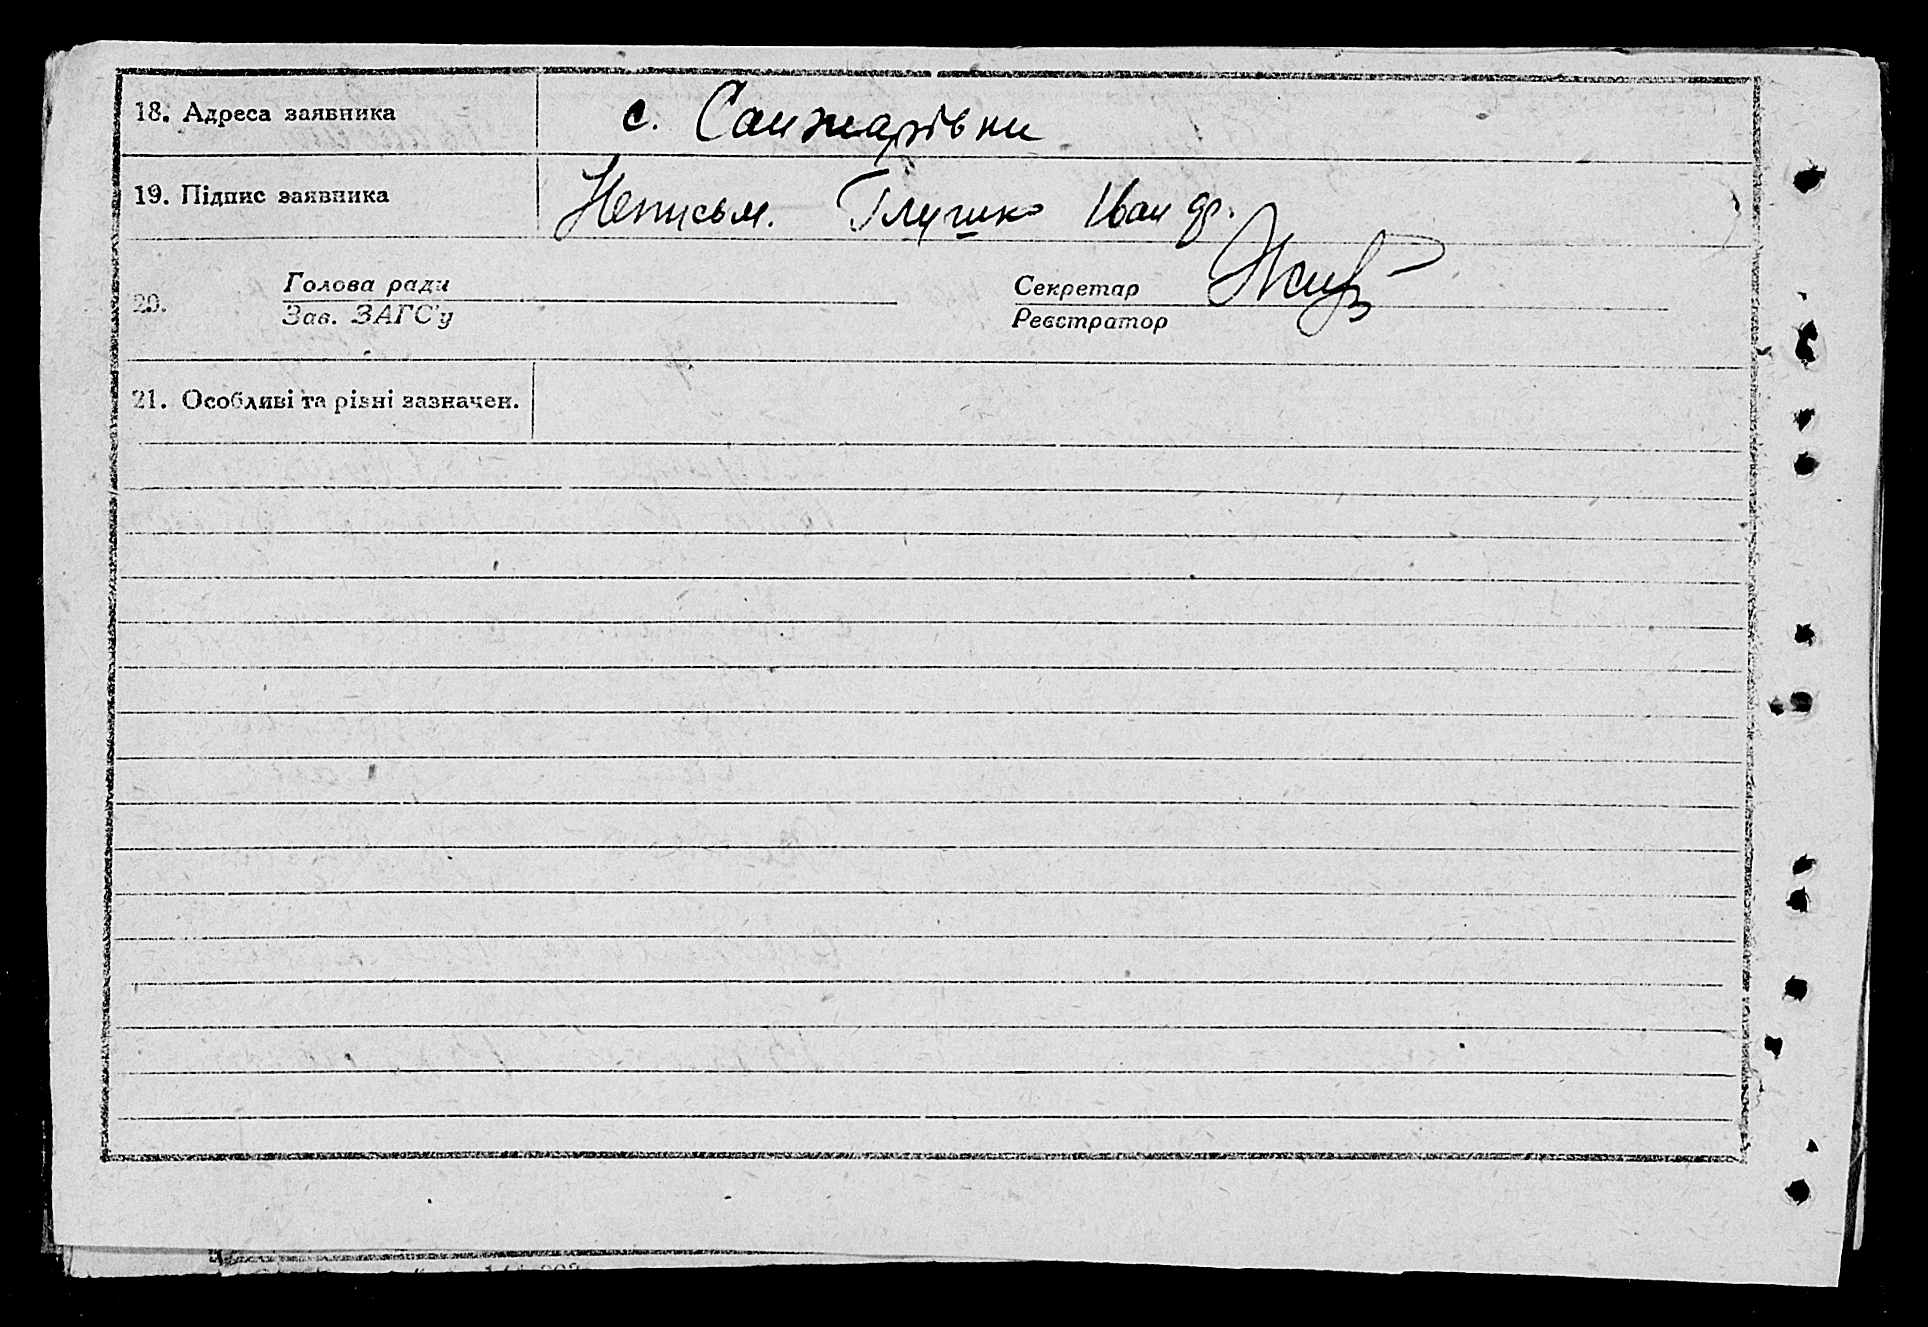 18. Адреса заявника с. Санжарівки
19. Підпис заявника Неписьм. Глушко Іван
20. Голова ради Секретар
Зав. ЗАГС'у Реєстратор
21. Особливі та різні зазначен.